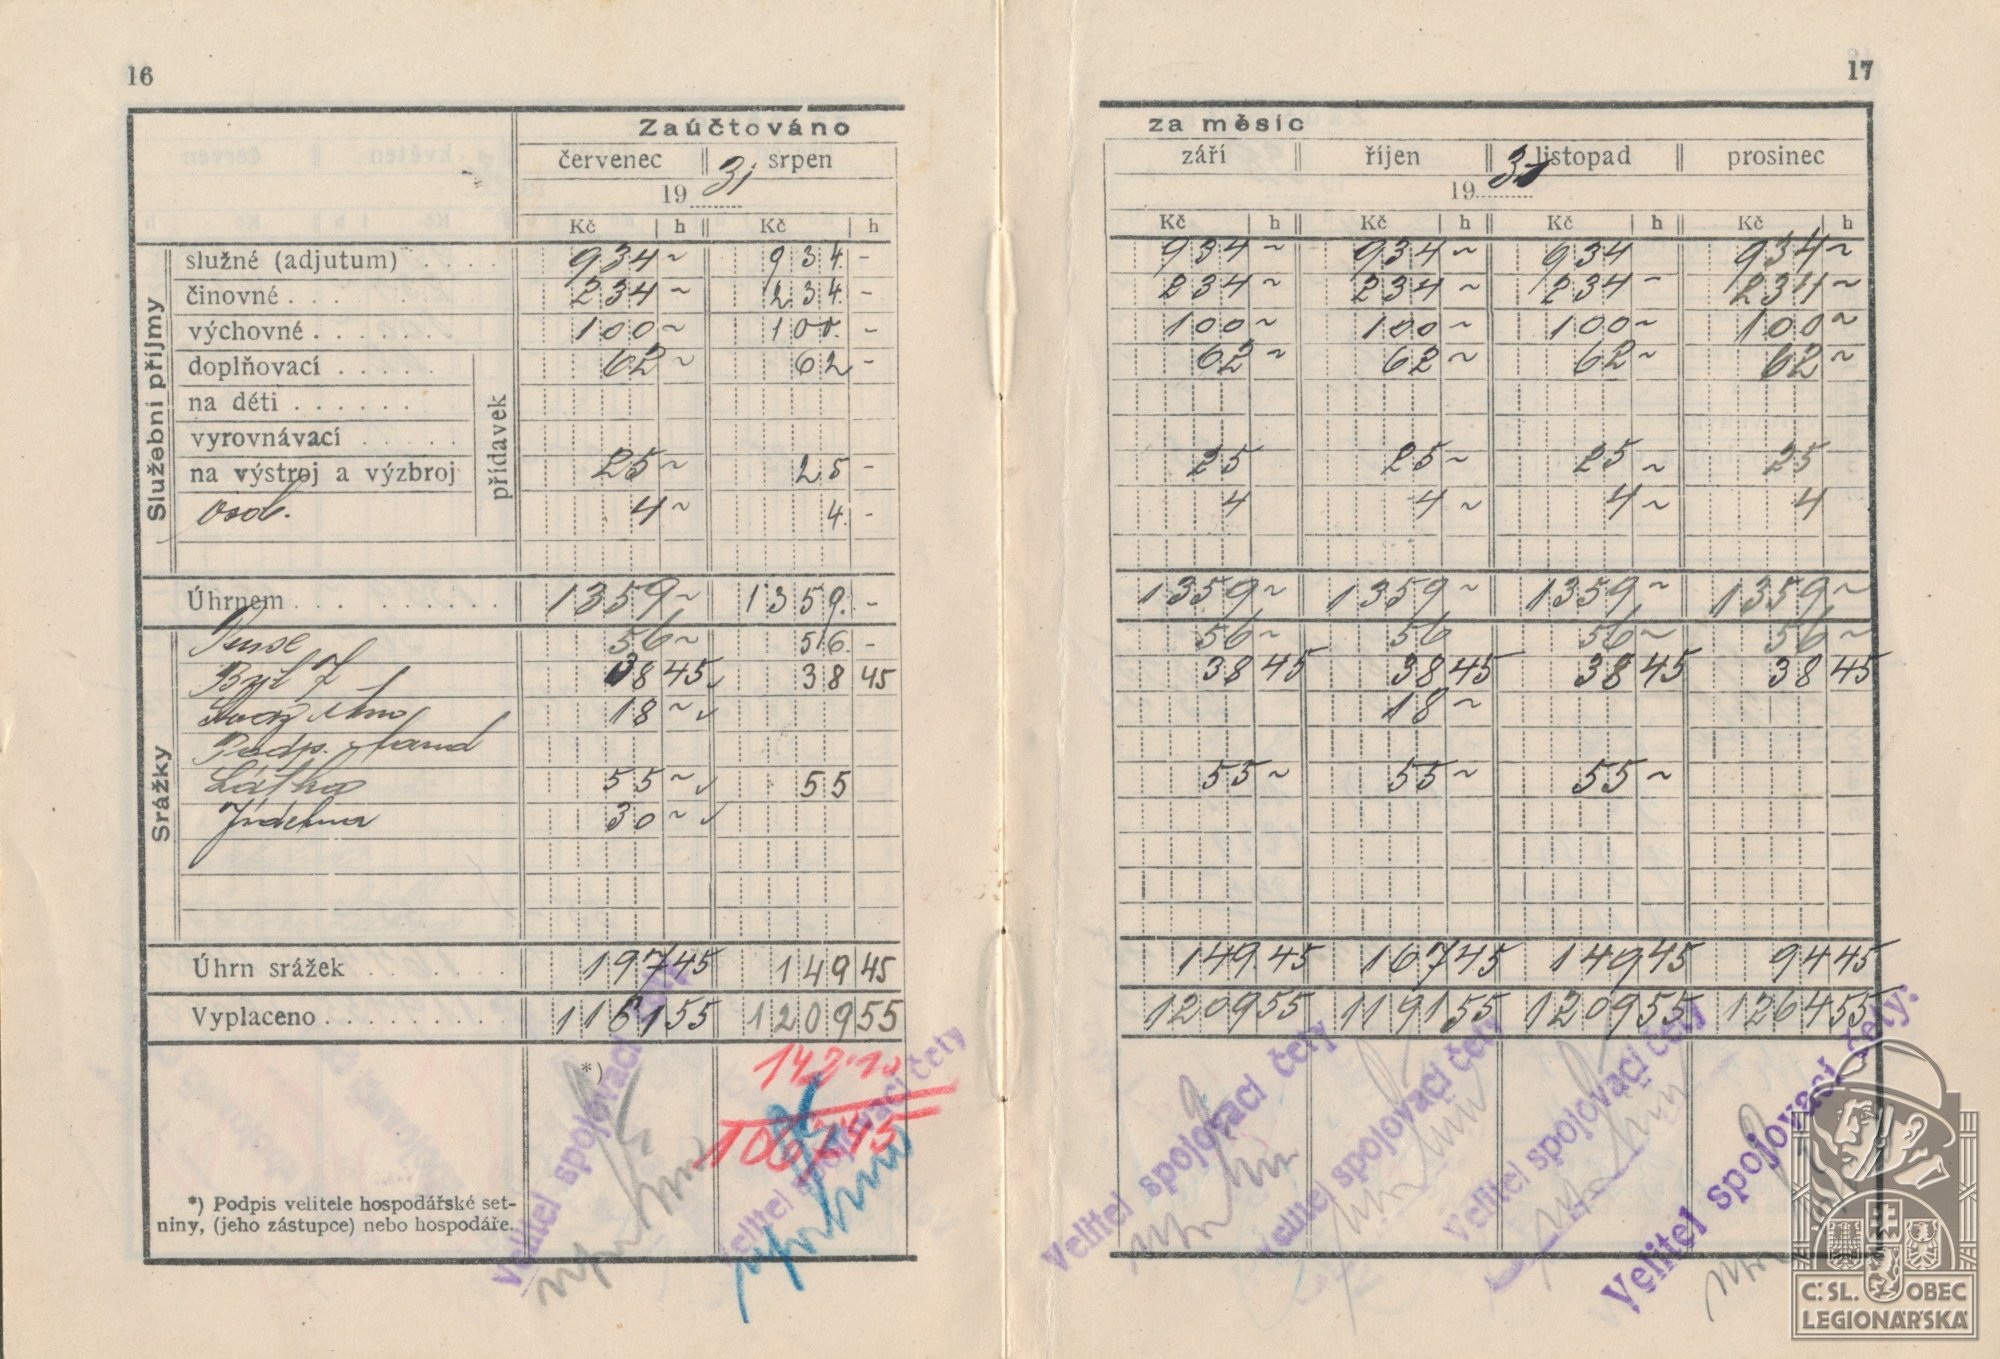 16
Zaúčtováno
červenec srpen
19 31
Kč h Kč h
Služební příjmy
služné (adjutum) . . . . 934 ~ 934. -
činovné . . . 234 ~ 234. -
výchovné . . . . . 100 ~ 100. -
doplňovací . . . . . 62 ~ 62 -
na děti . . . . . .
vyrovnávací . . . . .
na výstroj a výzbroj 25 ~ 25 -
přídavek
osob. 4 ~ 4. -
Úhrnem . . . . . . . . . . 1359 ~ 1359. -
Srážky
Pense 56 ~ 56. -
Byt 7 38 45 38 45
18 ~
Podp.
Látka 55 ~ 55
Jídelna 30 ~
Úhrn srážek . . . . . . . 197 45 149 45
Vyplaceno . . . . . . . . . 1161 55 1209 55
*)
142.10
1067 45
Velitel spojovací čety
Velitel spojovací čety
*) Podpis velitele hospodářské set-
niny, (jeho zástupce) nebo hospodáře.
17
za měsíc
září říjen listopad prosinec
19 31
Kč h Kč h Kč h Kč h
934 ~ 934 ~ 934 934 ~
234 ~ 234 ~ 234 - 234 ~
100 ~ 100 ~ 100 ~ 100 ~
62 ~ 62 ~ 62 ~ 62 ~
25 25 ~ 25 ~ 25
4 4 ~ 4 ~ 4
1359 ~ 1359 ~ 1359 ~ 1359 ~
56 ~ 56 56 ~ 56 ~
38 45 38 45 38 45 38 45
18 ~
55 ~ 55 ~ 55 ~
149.45 167 45 149 45 94 45
1209 55 1191 55 1209 55 1264 55
Velitel spojovací čety
Velitel spojovací čety
Velitel spojovací čety
Velitel spojovací čety:
Č. SL. OBEC
LEGIONÁŘSKÁ